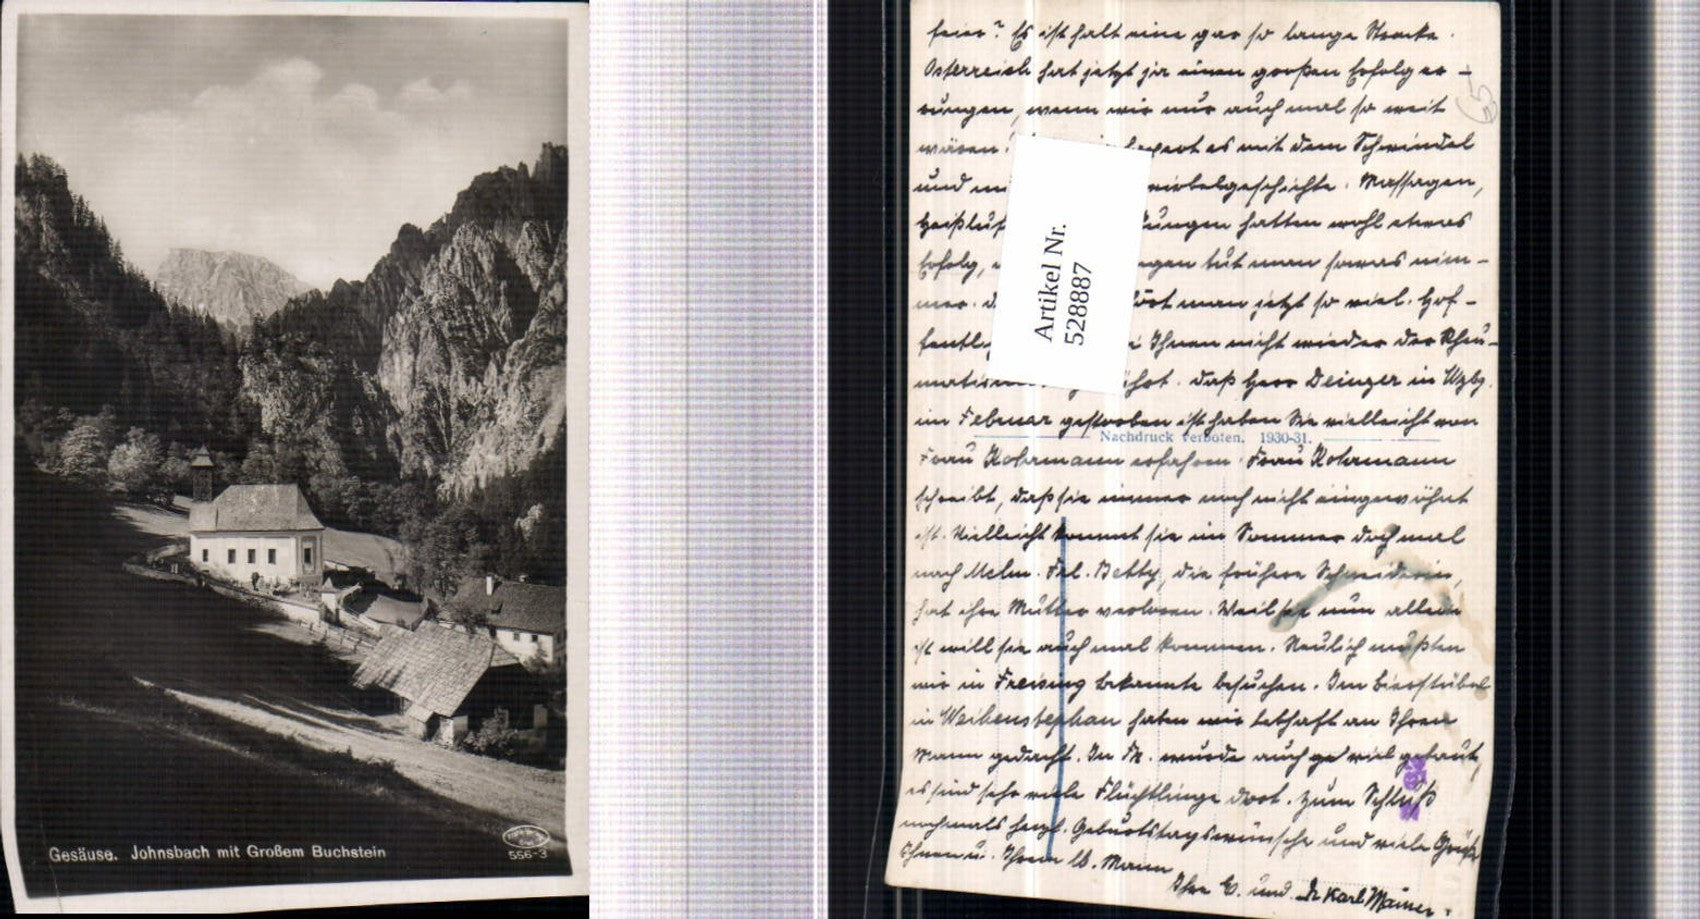 Gesäuse. Johnsbach mit Großem Buchstein
556-3
feier? Es ist halt eine gar so lange Strecke.
Österreich hat jetzt ja einen großen Erfolg er-
rungen, wenn wir nur auch mal so weit
wären. es mit dem Schwindel
und wirbelgeschichte. Massagen,
Heißluf ungen hatten wohl etwas
Erfolg, gen tut man sowas nim-
mer. man jetzt so viel. Hof-
fentl Ihnen nicht wieder der Rheu-
matis daß Herr Deinzer in Wzbg.
im Februar gestorben ist haben Sie vielleicht von
Nachdruck verboten. 1930-31.
Frau Kohrmann erfahren. Frau Kohrmann
schreibt, daß sie immer noch nicht eingewöhnt
ist. Vielleicht kommt sie im Sommer doch mal
nach Mchn. Frl. Betty, die frühere Schneiderin,
hat ihre Mutter verloren. Weil sie nun allein
ist will sie auch mal kommen. Neulich mußten
wir in Freising Bekannte besuchen. Im Bierstüberl
in Weihenstephan haben wir lebhaft an Ihren
Mann gedacht. In Fr. wurde auch viel gebaut,
es sind sehr viele Flüchtlinge dort. Zum Schluß
nochmals herzl. Geburtstagswünsche und viele Grüße
Ihnen u. Ihrem lb. Mann
Ihre E. und Dr Karl Mainer.
Artikel Nr.
528887